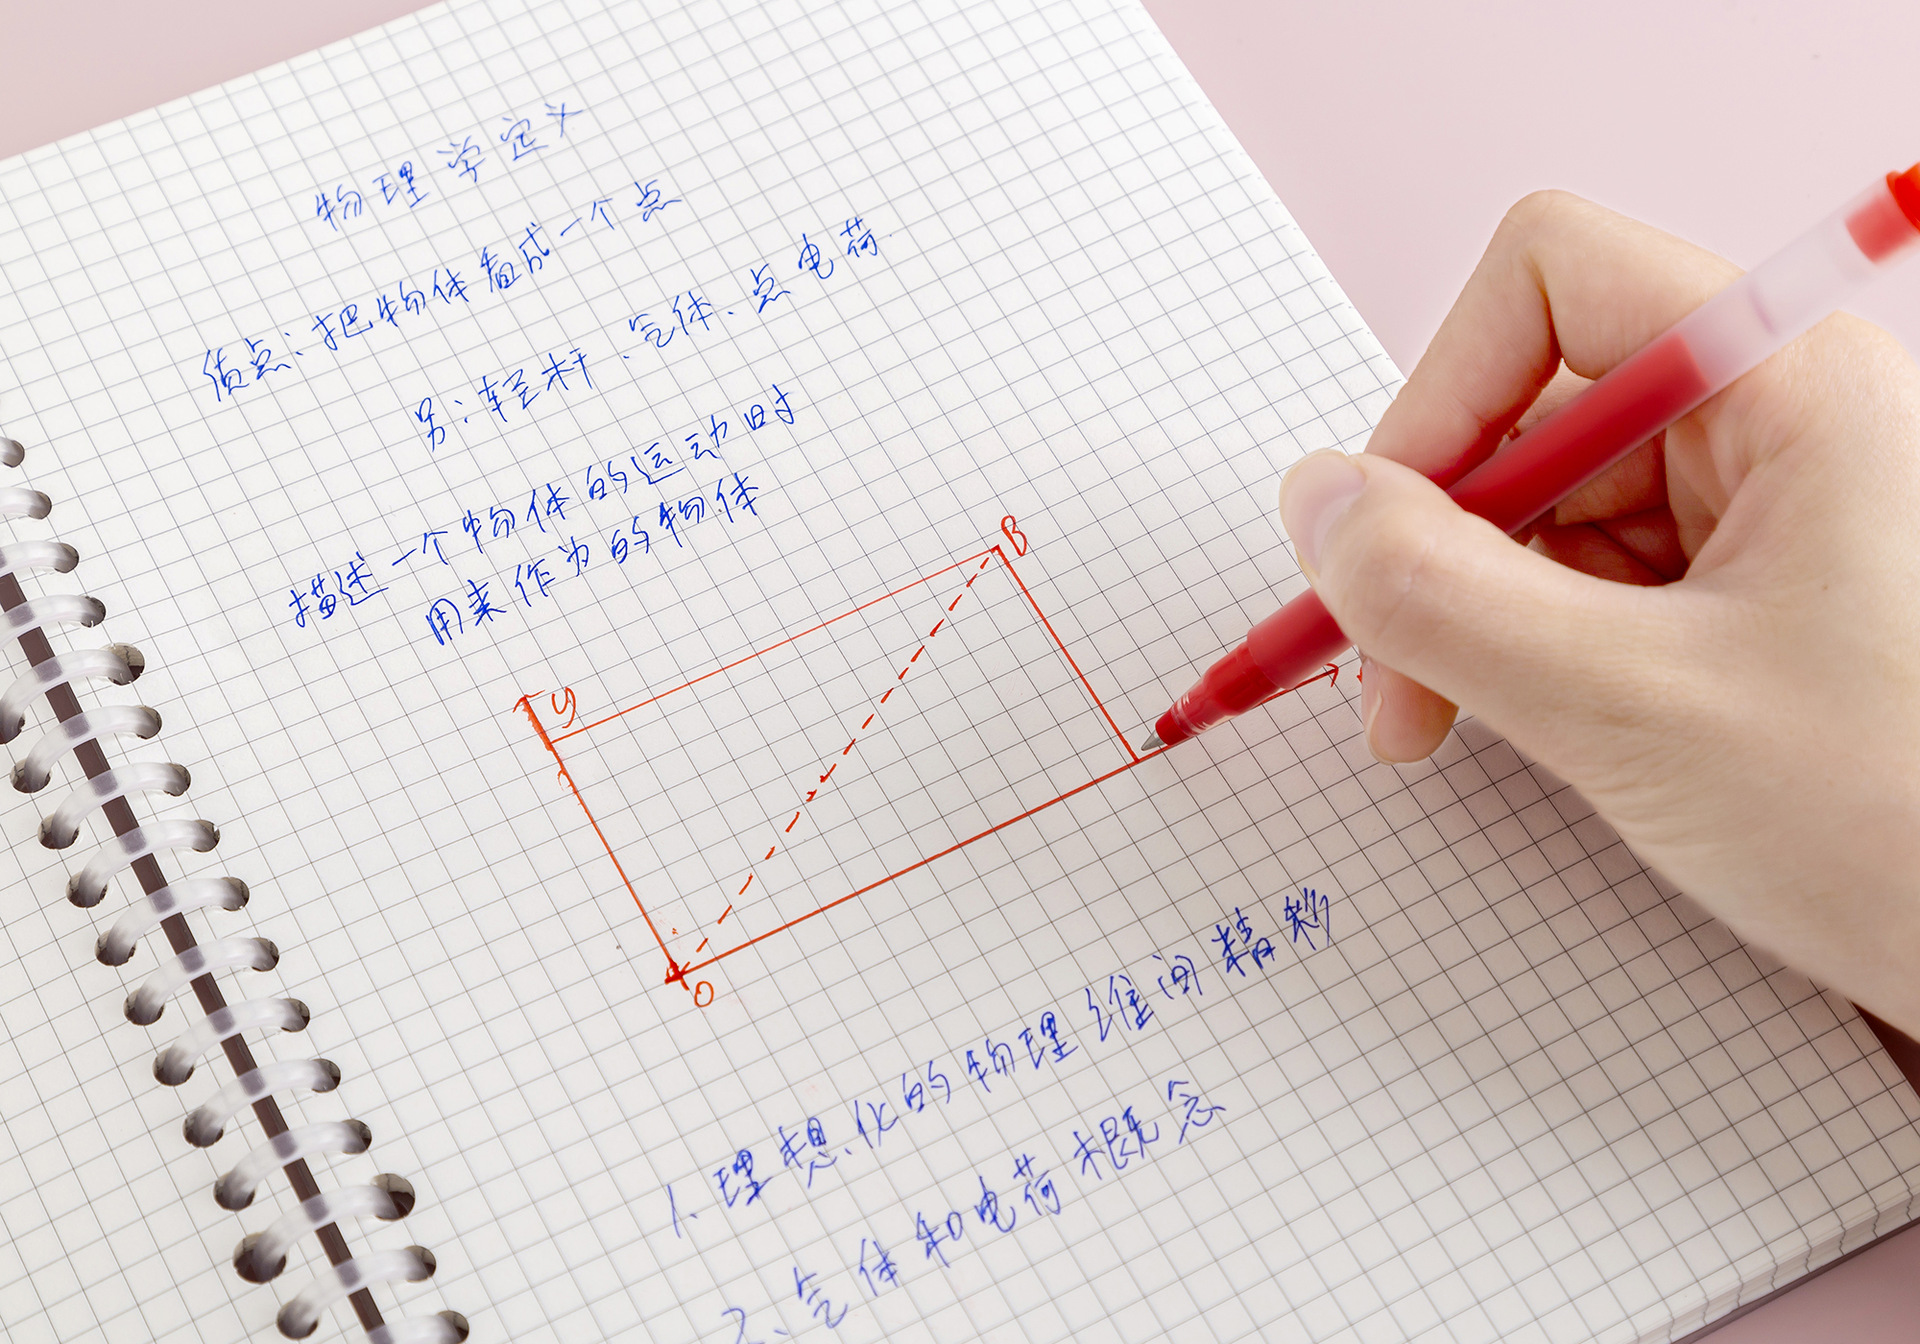 物理学定义
质点：把物体看成一个点
另：轻杆、气体、点电荷.
描述一个物体的运动时
用来作为的物体
y
B
O
1、理想化的物理维间精粉
2、气体和电荷概念